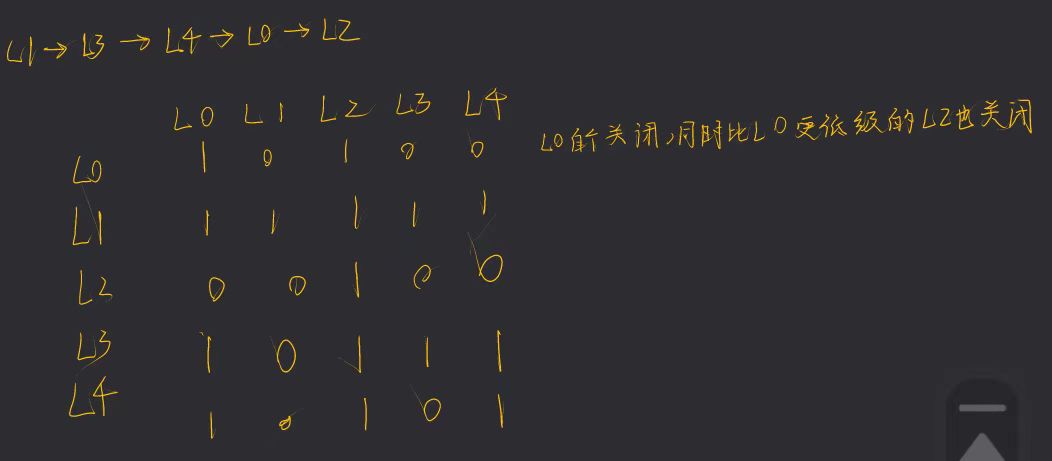 L1→L3→L4→L0→L2
L0 L1 L2 L3 L4
L0 1 0 1 0 0
L1 1 1 1 1 1
L2 0 0 1 0 0
L3 1 0 1 1 1
L4 1 0 1 0 1
L0 关闭,同时比L0更低级的L2也关闭